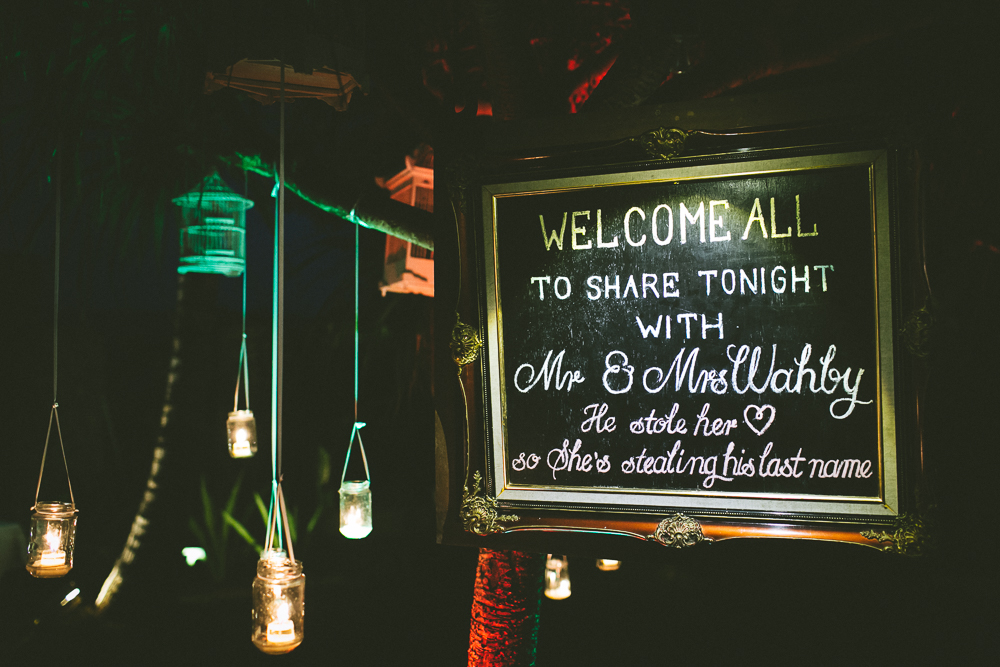 WELCOME ALL
TO SHARE TONIGHT
WITH
Mr & Mrs Wahby
He stole her ♡
so She's stealing his last name